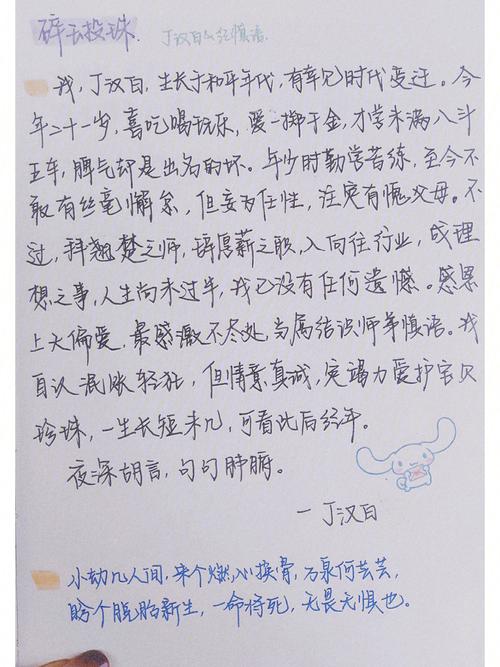 碎玉投珠. 丁汉白&纪慎语.
我,丁汉白,生长于和平年代,有幸见时代变迁。今
年二十一岁,喜吃喝玩乐,爱一掷千金,才学未满八斗
五车,脾气却是出名的坏。年少时勤学苦练,至今不
敢有丝毫懈怠,但妄为任性,注定有愧父母。不
过,拜翘楚之师,辞厚薪之职,入向往行业,成理
想之事,人生尚未过半,我已没有任何遗憾。感恩
上天偏爱,最感激不尽处,当属结识师弟慎语。我
自认混账轻狂,但情意真诚,定竭力爱护宝贝
珍珠,一生长短未几,可看此后经年。
夜深胡言,句句肺腑。
一丁汉白
小劫几人间,来个燃心换骨,万象何芸芸,
盼个脱胎新生,一命将死,无畏无惧也。